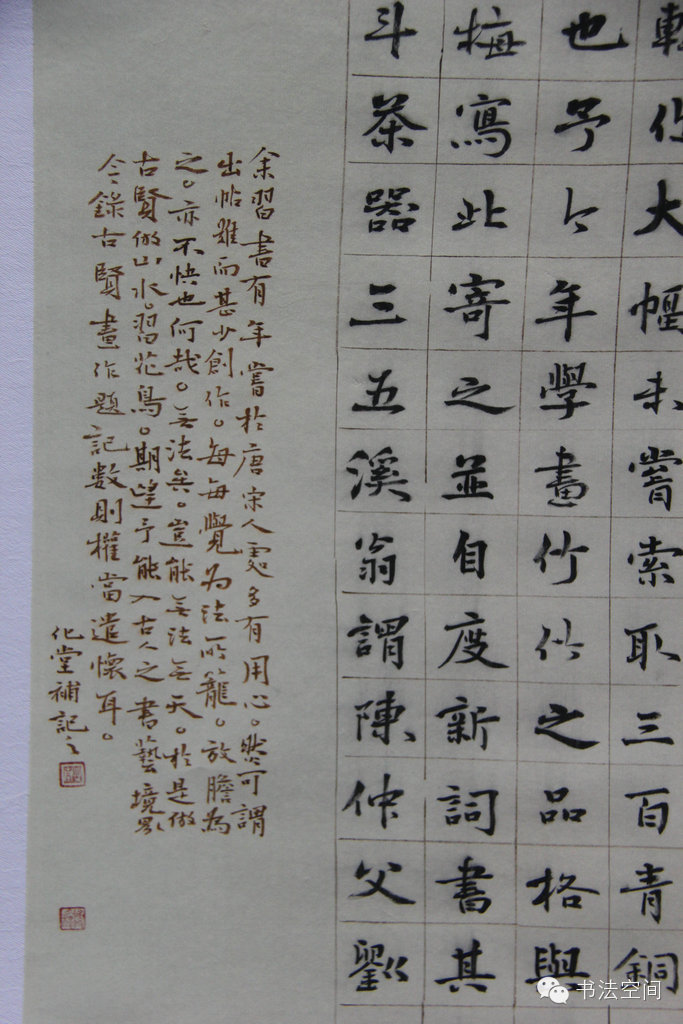 作大幅未嘗索取三百青銅
也予今年學畫竹竹之品格與
梅寫此寄之並自度新詞書其
斗茶器三五溪翁謂陳仲父劉
余習書有年嘗於唐宋人處多有用心。然可謂
出帖難而甚少創作。每每覺為法所籠。放膽為
之。亦不快也何哉。無法矣。豈能無法無天。於是做
古賢做山水。習花鳥。期望予能入古人之書藝境界
今錄古賢畫作題記數則權當遣懷耳。
化堂補記之
书法空间